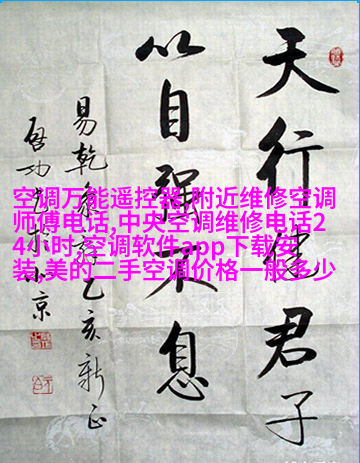 天行健君子
以自强不息
易乾象 乙亥新正
啟功 京
空调万能遥控器,附近维修空调
师傅电话,中央空调维修电话2
4小时,空调软件app下载安
装,美的二手空调价格一般多少